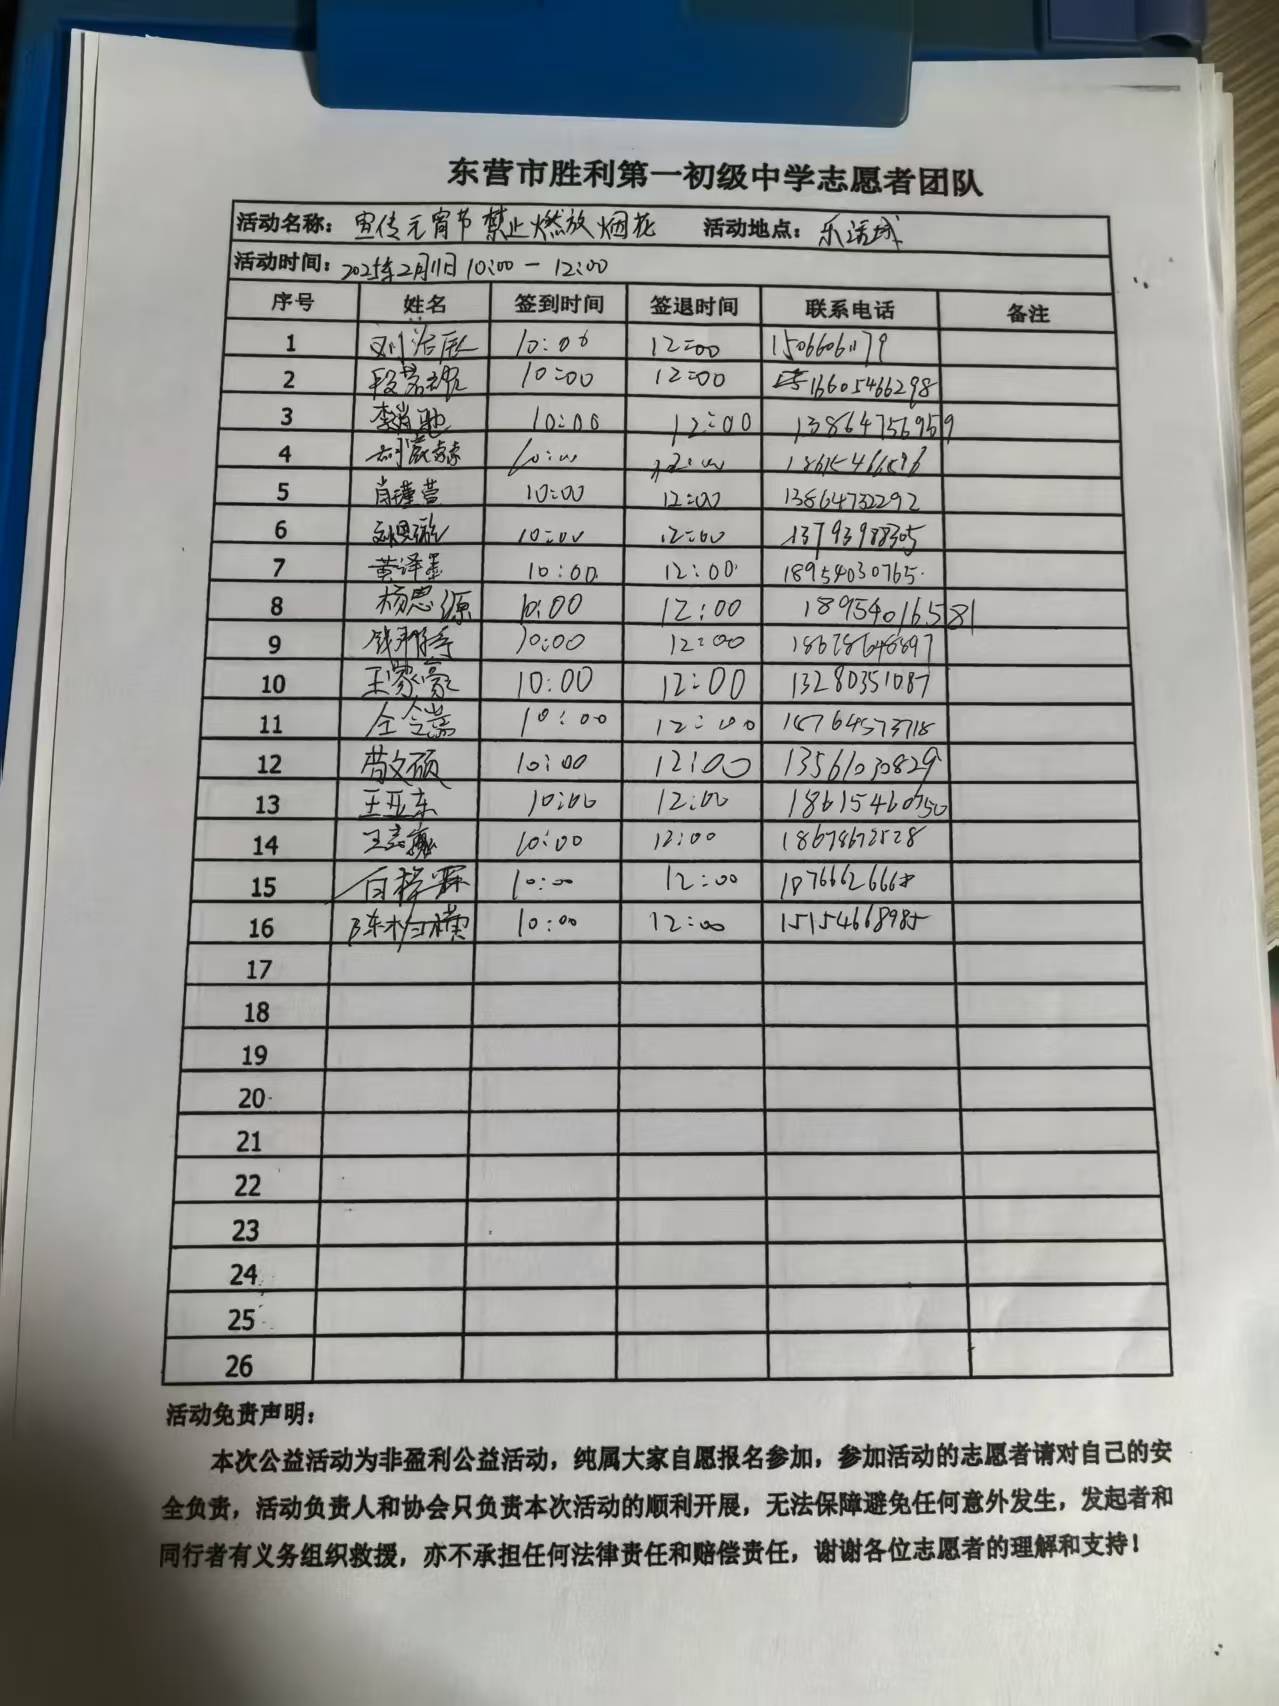 东营市胜利第一初级中学志愿者团队
活动名称：宣传元宵节禁止燃放烟花 活动地点：乐活城
活动时间：2025年2月11日10:00-12:00
序号 姓名 签到时间 签退时间 联系电话 备注
1 10:00 12:00
2 10:00 12:00 16605466298
3 李肖驰 10:00 12:00 13864756959
4 10:00 12:00
5 肖瑾萱 10:00 12:00 13864732292
6 10:00 12:00 13793988305
7 黄泽墨 10:00 12:00 18954030765
8 杨思源 10:00 12:00 18954016581
9 10:00 12:00
10 王家豪 10:00 12:00 13280351087
11 10:00 12:00 18764573718
12 10:00 12:00 13561030829
13 王亚东 10:00 12:00 18615460750
14 10:00 12:00 18678672528
15 10:00 12:00 18766626668
16 10:00 12:00 15154668985
17
18
19
20
21
22
23
24
25
26
活动免责声明：
本次公益活动为非盈利公益活动，纯属大家自愿报名参加，参加活动的志愿者请对自己的安
全负责，活动负责人和协会只负责本次活动的顺利开展，无法保障避免任何意外发生，发起者和
同行者有义务组织救援，亦不承担任何法律责任和赔偿责任，谢谢各位志愿者的理解和支持！